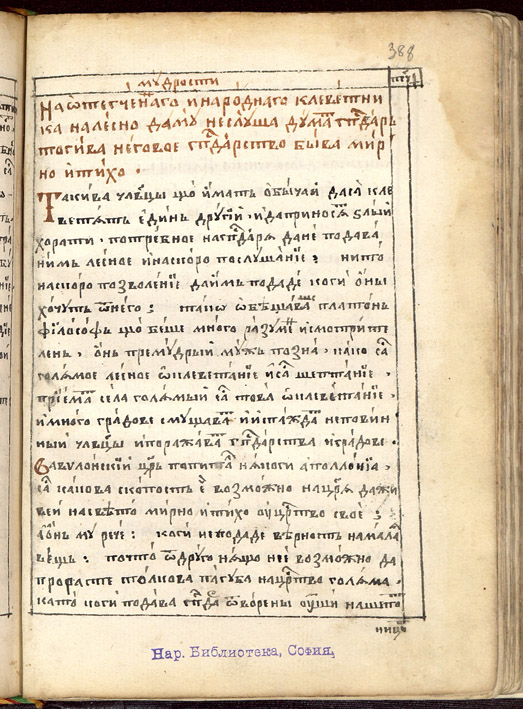 388
мꙋдрости
На ѡтегченаго и народнаго клеветни
ка на лесно даму неслуша дума гпⷭ҇дарь
тогива неговое гпⷭ҇дарство быва мир
но и тихо ·
Такива члвцы що имать обычай даса кле
ветять единь другїй · и да приносѧ ѕлый
хорати · потребное на спⷭ҇даря да не подава
нимь лесное и наскоро послушанїе : нито
наскоро позволенїе да имь подаде коги оны
хочуть ѿ него : тако ѡбѣщава платонь
філософь що беше много разуме и смотрите
лень · онь премудрый мужь позна · како са
голямое лесное ѡклеветанїе и са шептанїе ·
прїема села голямый са това ѡклеветанїе ·
и много градове смущава и изтажда неповин
ный члвцы и поражава гпⷭ҇дарства и градове ·
Вавулонскїй црь попита нѧкоги аполлонїа ·
са какова скопость е возможно на црѧ да жи
вей на свѣто мирно и тихо ѹ црⷭ҇тво свое :
а онь му рече : коги не подаде вѣрность на мала
вещь : почто ѿ друго нѧщо нее возможно да
прорасте толкова пагуба на црⷭ҇тво голяма ·
като коги подава гпⷭ҇да ѿворены ѹшы на шепто
ници
Нар. Библиотека, София.